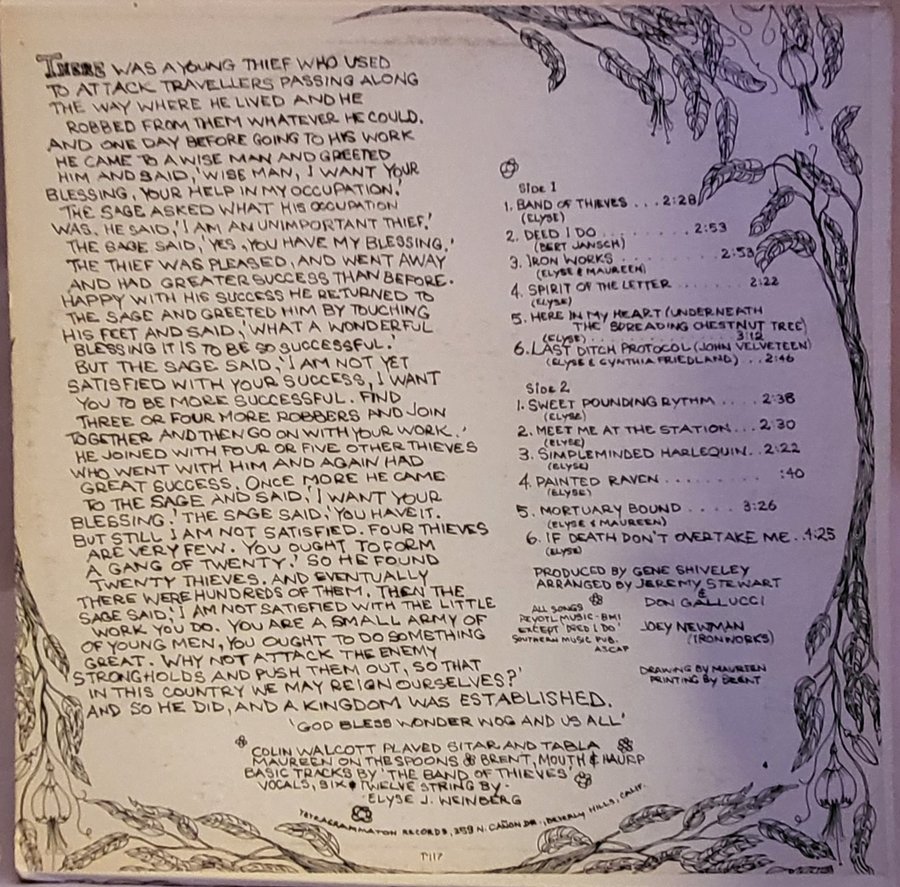 THERE WAS A YOUNG THIEF WHO USED
TO ATTACK TRAVELLERS PASSING ALONG
THE WAY WHERE HE LIVED AND HE
ROBBED FROM THEM WHATEVER HE COULD.
AND ONE DAY BEFORE GOING TO HIS WORK
HE CAME TO A WISE MAN AND GREETED
HIM AND SAID, 'WISE MAN, I WANT YOUR
BLESSING, YOUR HELP IN MY OCCUPATION.'
THE SAGE ASKED WHAT HIS OCCUPATION
WAS. HE SAID, 'I AM AN UNIMPORTANT THIEF.'
THE SAGE SAID, 'YES, YOU HAVE MY BLESSING.'
THE THIEF WAS PLEASED, AND WENT AWAY
AND HAD GREATER SUCCESS THAN BEFORE.
HAPPY WITH HIS SUCCESS HE RETURNED TO
THE SAGE AND GREETED HIM BY TOUCHING
HIS FEET AND SAID, 'WHAT A WONDERFUL
BLESSING IT IS TO BE SO SUCCESSFUL.'
BUT THE SAGE SAID, 'I AM NOT YET
SATISFIED WITH YOUR SUCCESS, I WANT
YOU TO BE MORE SUCCESSFUL. FIND
THREE OR FOUR MORE ROBBERS AND JOIN
TOGETHER AND THEN GO ON WITH YOUR WORK.'
HE JOINED WITH FOUR OR FIVE OTHER THIEVES
WHO WENT WITH HIM AND AGAIN HAD
GREAT SUCCESS. ONCE MORE HE CAME
TO THE SAGE AND SAID, 'I WANT YOUR
BLESSING.' THE SAGE SAID, 'YOU HAVE IT.
BUT STILL I AM NOT SATISFIED. FOUR THIEVES
ARE VERY FEW. YOU OUGHT TO FORM
A GANG OF TWENTY.' SO HE FOUND
TWENTY THIEVES. AND EVENTUALLY
THERE WERE HUNDREDS OF THEM. THEN THE
SAGE SAID, 'I AM NOT SATISFIED WITH THE LITTLE
WORK YOU DO. YOU ARE A SMALL ARMY OF
OF YOUNG MEN, YOU OUGHT TO DO SOMETHING
GREAT. WHY NOT ATTACK THE ENEMY
STRONGHOLDS AND PUSH THEM OUT, SO THAT
IN THIS COUNTRY WE MAY REIGN OURSELVES?'
AND SO HE DID, AND A KINGDOM WAS ESTABLISHED.
'GOD BLESS WONDER WOG AND US ALL'
COLIN WALCOTT PLAYED SITAR AND TABLA
MAUREEN ON THE SPOONS & BRENT, MOUTH & HAURP
BASIC TRACKS BY 'THE BAND OF THIEVES'
VOCALS, SIX & TWELVE STRING BY-
ELYSE J. WEINBERG
TETRAGRAMMATON RECORDS, 359 N. CAÑON DR., BEVERLY HILLS, CALIF.
T-117
Side 1
1. BAND OF THIEVES ... 2:28
(ELYSE)
2. DEED I DO ........ 2:53
(BERT JANSCH)
3. IRON WORKS ........ 2:53
(ELYSE & MAUREEN)
4. SPIRIT OF THE LETTER ....... 2:22
(ELYSE)
5. HERE IN MY HEART (UNDERNEATH
THE SPREADING CHESTNUT TREE)
(ELYSE) ........ 3:12
6. LAST DITCH PROTOCOL (JOHN VELVETEEN)
(ELYSE & CYNTHIA FRIEDLAND) .. 2:46
Side 2
1. SWEET POUNDING RYTHM .... 2:38
(ELYSE)
2. MEET ME AT THE STATION... 2:30
(ELYSE)
3. SIMPLEMINDED HARLEQUIN.. 2:22
(ELYSE)
4. PAINTED RAVEN ......... :40
(ELYSE)
5. MORTUARY BOUND .... 3:26
(ELYSE & MAUREEN)
6. IF DEATH DON'T OVERTAKE ME.. 4:25
(ELYSE)
PRODUCED BY GENE SHIVELEY
ARRANGED BY JEREMY STEWART
&
DON GALLUCCI
JOEY NEWMAN
(IRONWORKS)
ALL SONGS
PEYOTL MUSIC-BMI
EXCEPT 'DEED I DO'
SOUTHERN MUSIC PUB.
ASCAP
DRAWING BY MAUREEN
PRINTING BY BRENT